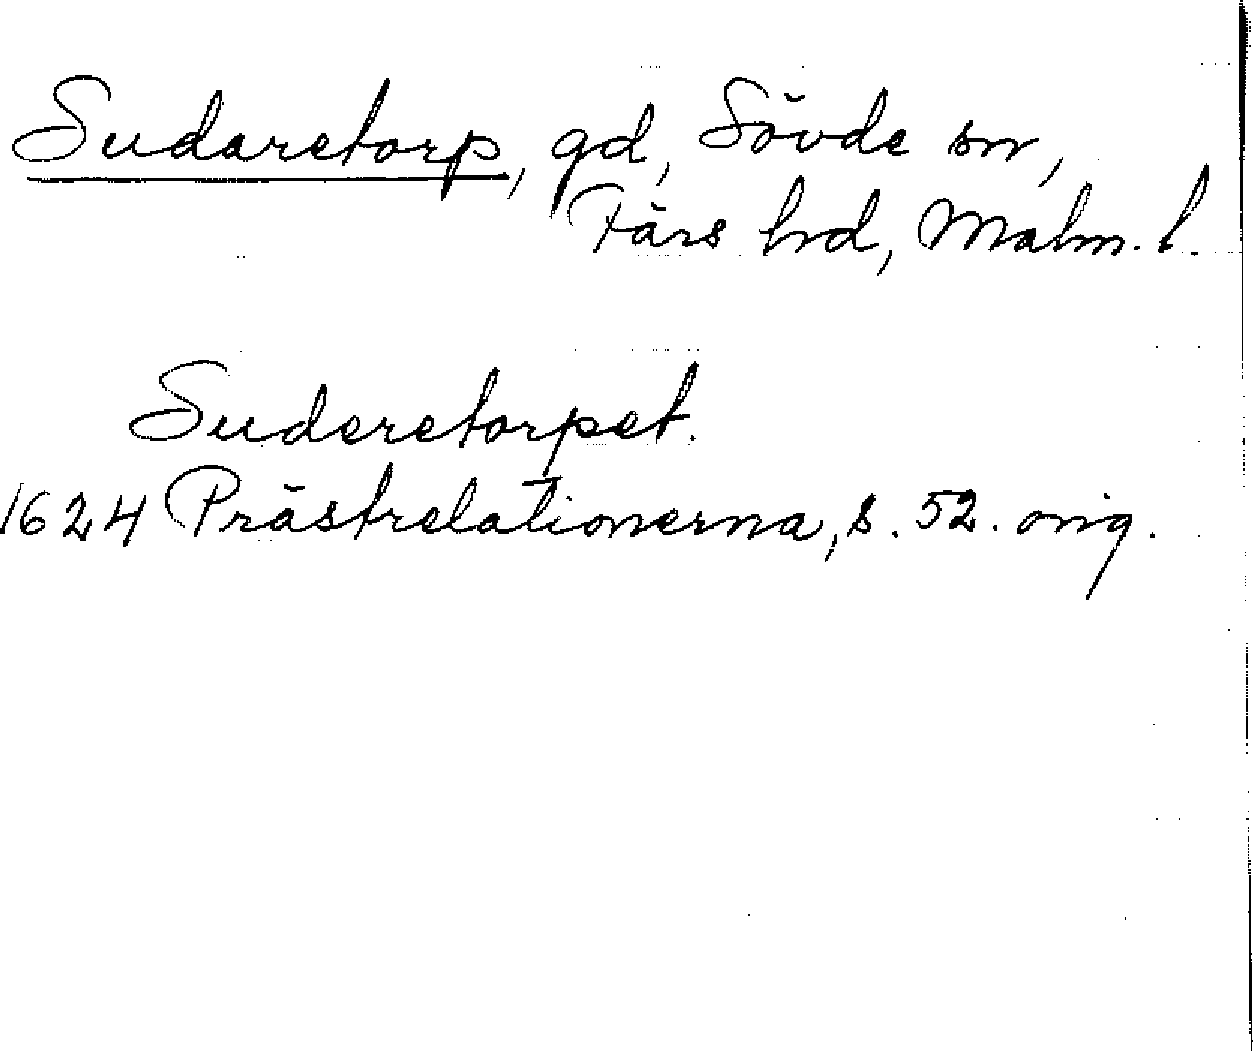 Sudaretorp, gd, Sövde sn,
Färs hrd, Malm. l.
Suderetorpet.
1624 Prästrelationerna, s. 52. orig.